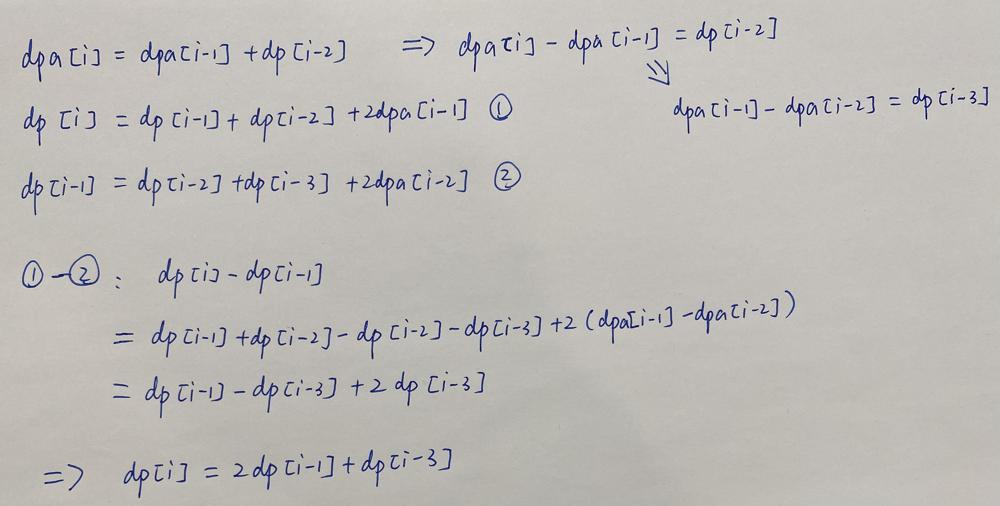 dpa[i] = dpa[i-1] + dp[i-2] => dpa[i] - dpa[i-1] = dp[i-2]
⇓
dpa[i-1] - dpa[i-2] = dp[i-3]
dp[i] = dp[i-1] + dp[i-2] + 2dpa[i-1] ①
dp[i-1] = dp[i-2] + dp[i-3] + 2dpa[i-2] ②
① - ② : dp[i] - dp[i-1]
= dp[i-1] + dp[i-2] - dp[i-2] - dp[i-3] + 2 (dpa[i-1] - dpa[i-2])
= dp[i-1] - dp[i-3] + 2 dp[i-3]
=> dp[i] = 2dp[i-1] + dp[i-3]